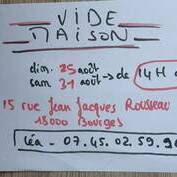 VIDE
MAISON
dim. 25 août
sam 31 août → de 14H
15 rue Jean Jacques Rousseau
18000 Bourges
Léa - 07.45.02.59.